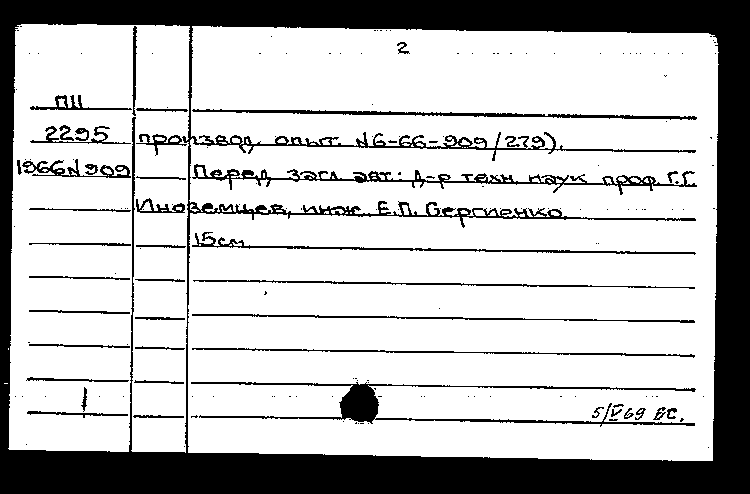 2
ПII
2295 производ. опыт. N6-66-909/279).
1966N909 Перед загл. авт.: Д-р техн. наук проф. Г.Г.
Иноземцев, инж. Е.П. Сергиенко.
15см.
1
5/V 69 ВС.